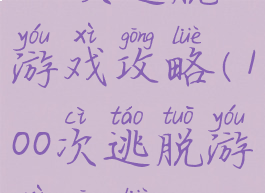 yóu xì gōng lüè
游戏攻略(1
cì táo tuō yóu
00次逃脱游